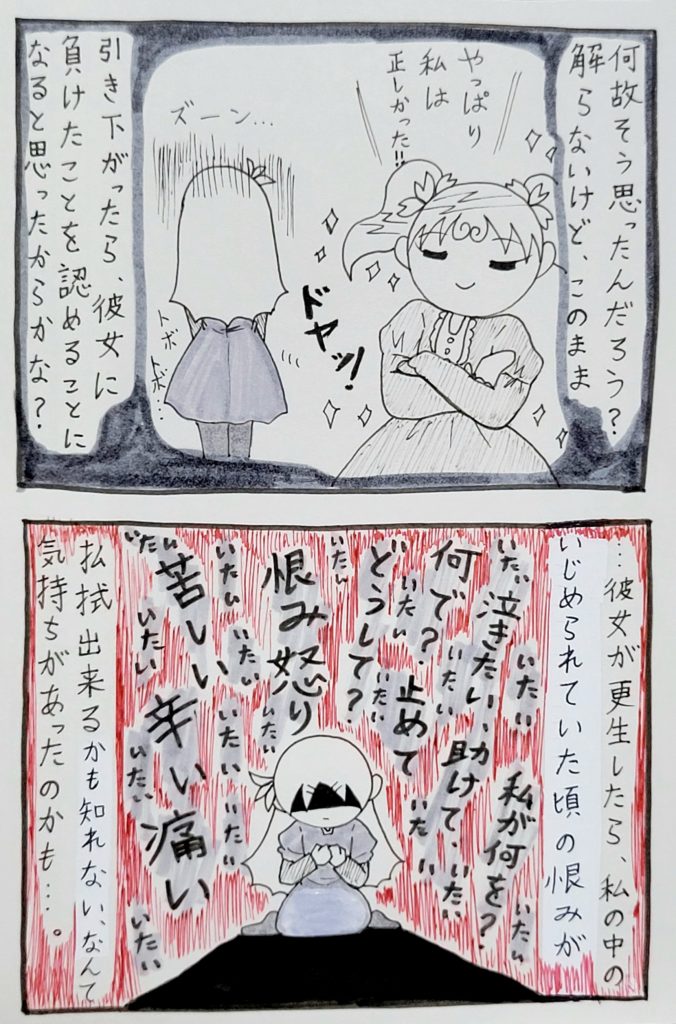 何故そう思ったんだろう？
解らないけど、このまま
やっぱり
私は
正しかった!!
ドヤッ!
ズーン…
トボ
トボ…
引き下がったら、彼女に
負けたことを認めることに
なると思ったからかな？
…彼女が更生したら、私の中の
いじめられていた頃の恨みが
いたい
私が何を？
いたい
いたい
泣きたい、助けて、いたい
いたい
何で？、止めて
いたい
いたい
いたい
どうして？
いたい
いたい
恨み怒り
いたい
いたい
いたい
いたい
いたい
苦しい辛い痛い
いたい
いたい
いたい
いたい
払拭出来るかも知れない、なんて
気持ちがあったのかも…。